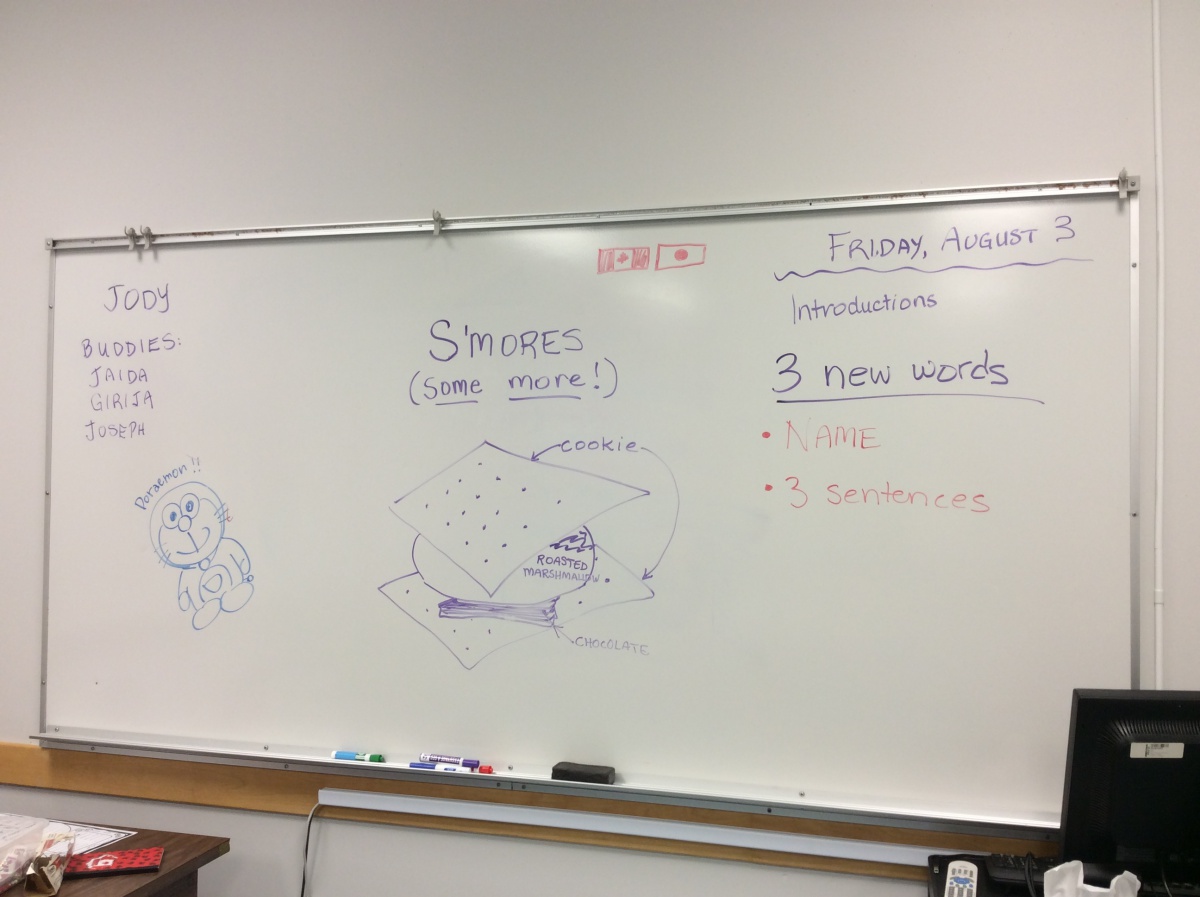 JODY
BUDDIES:
JAIDA
GIRIJA
JOSEPH
Doraemon!!
S'MORES
(some more!)
cookie
ROASTED
MARSHMALLOW
CHOCOLATE
FRIDAY, AUGUST 3
Introductions
3 new words
• NAME
• 3 sentences